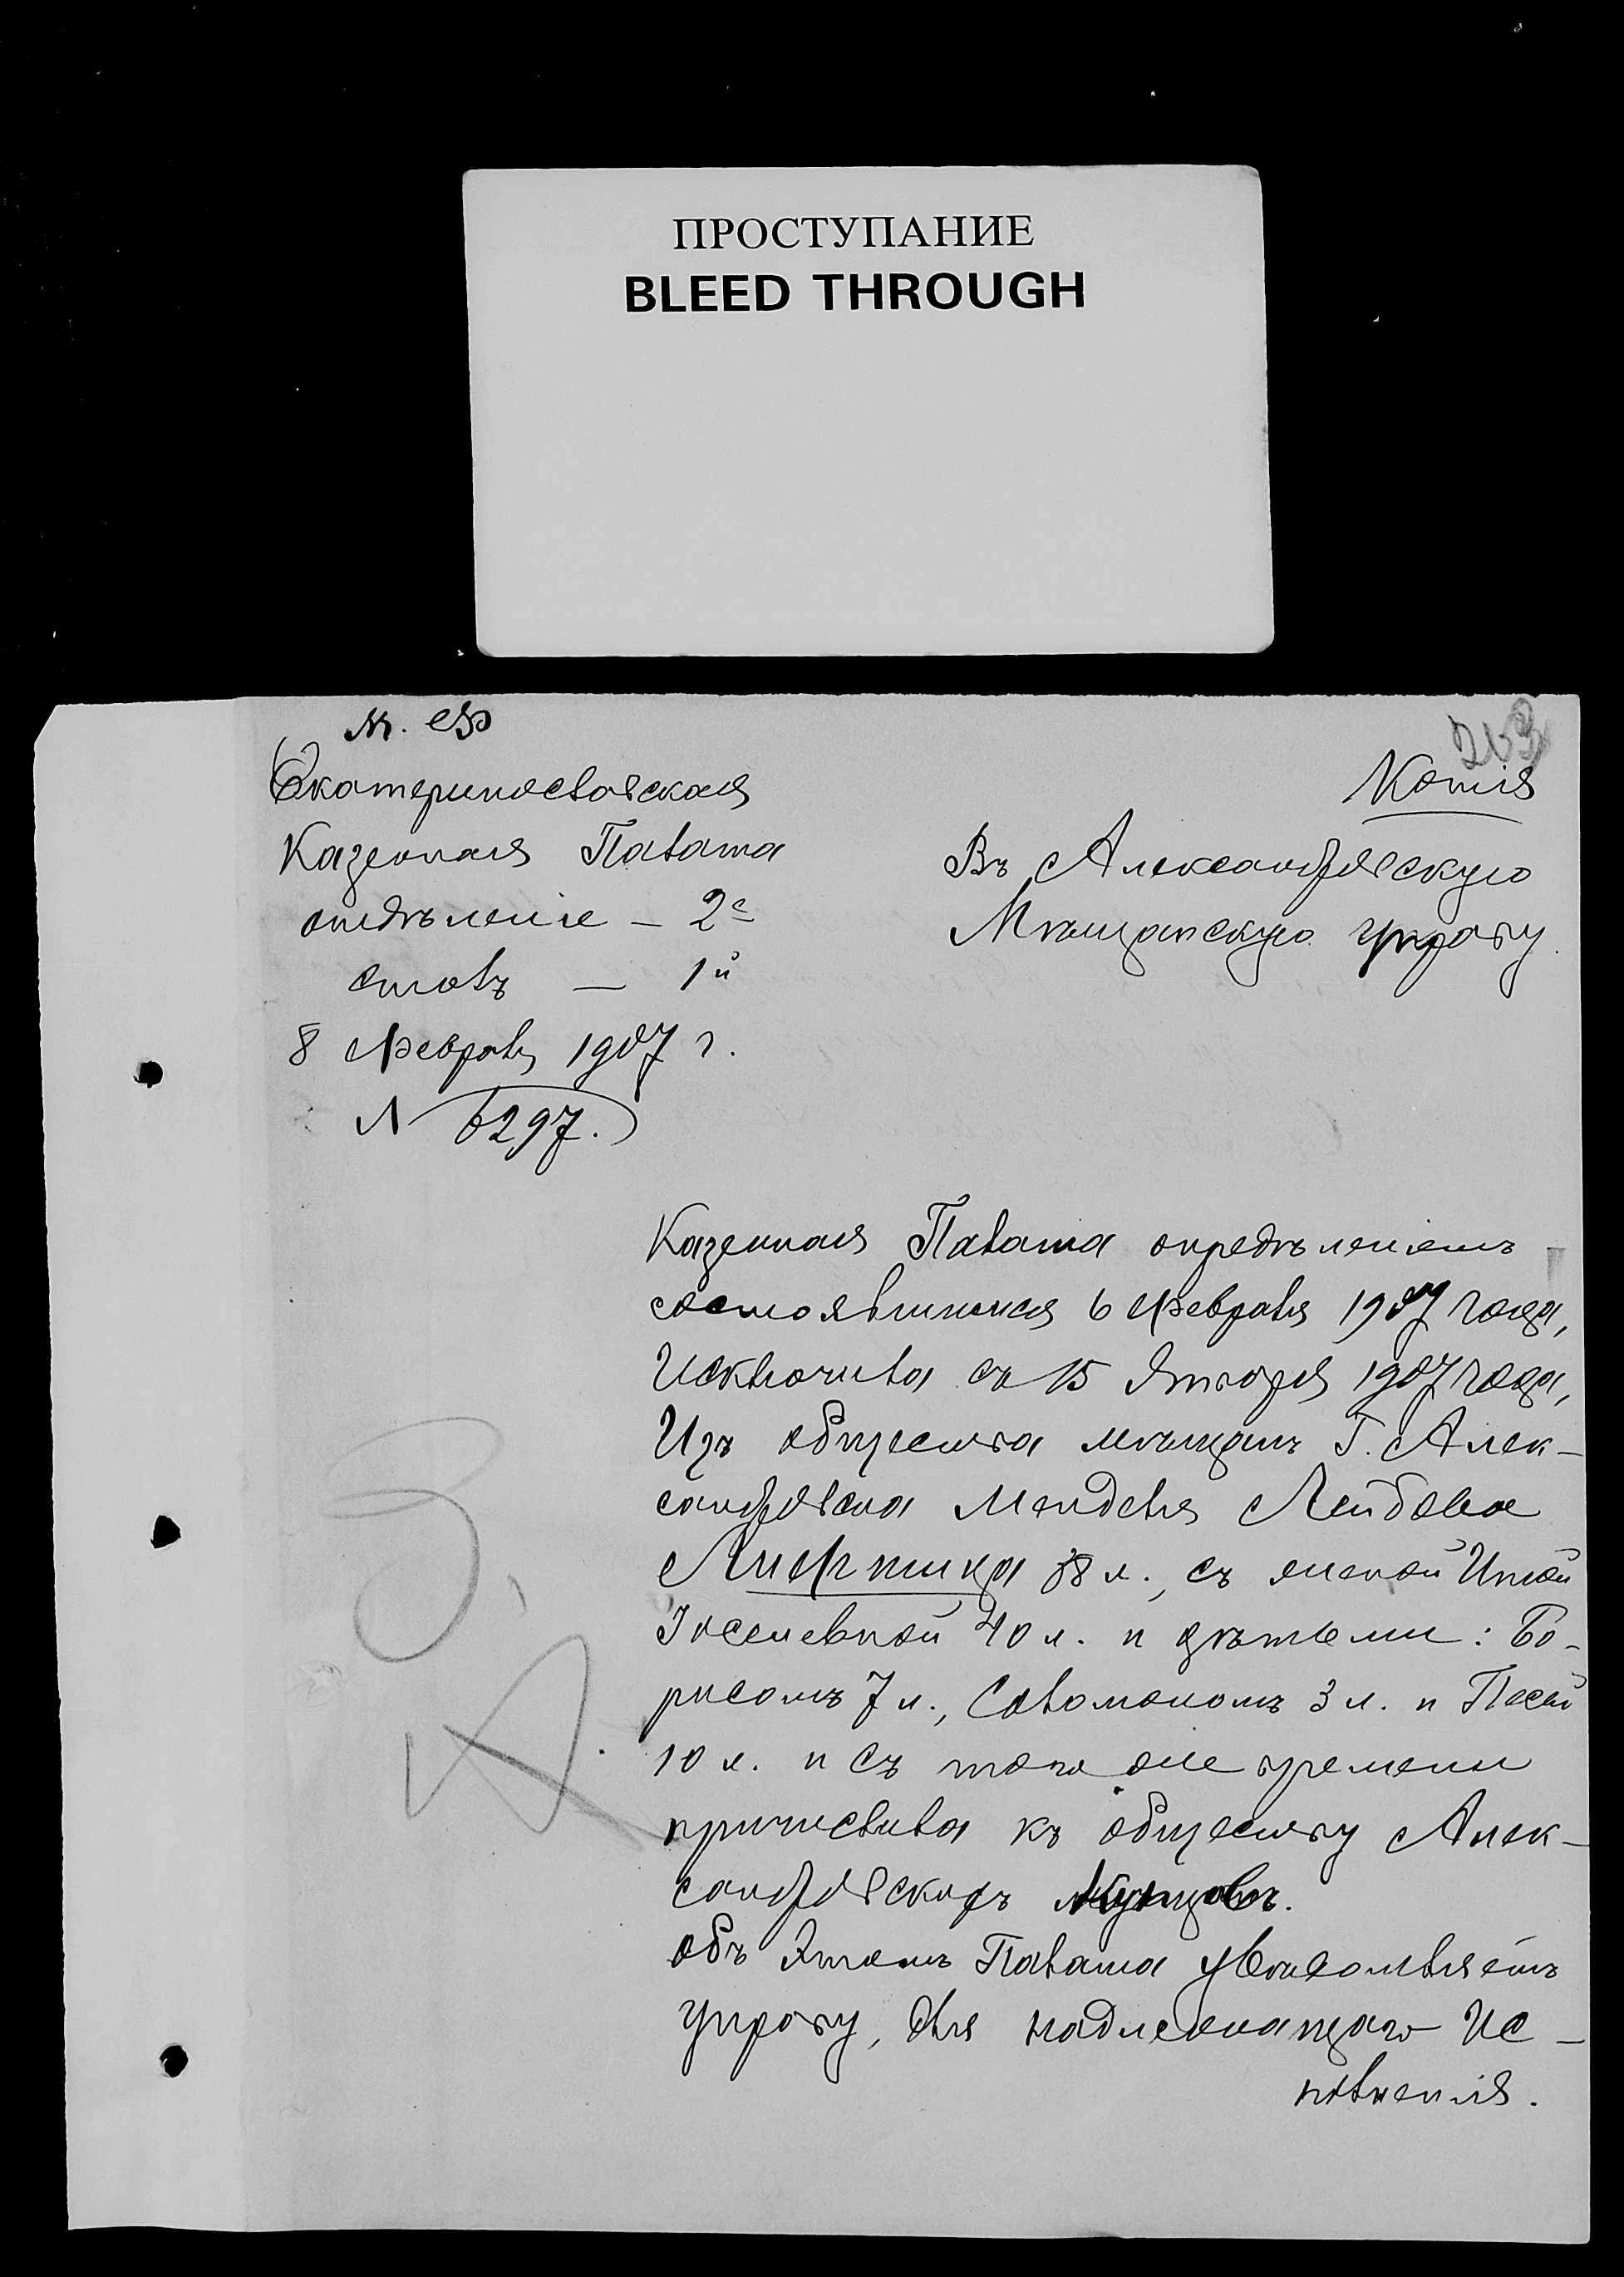 ПРОСТУПАНИЕ
BLEED THROUGH
М. Ф
263
Екатеринославская
Копія
Казенная Палата
Въ Александровскую
отдѣленіе – 2е
Мѣщанскую управу
столъ – 1й
8 Февраля 1907 г.
№ 6297.
Казенная Палата опредѣленіемъ
состоявшимся 6 Февраля 1907 года,
Исключила съ 15 Января 1907 года,
Изъ общества мѣщанъ Г. Алек-
сандровска Менделя Лейбова
38 л., съ женой Итой
Іоселевной 40 л. и дѣтьми: Бо-
рисомъ 7 л., Соломономъ 3 л. и Песей
10 л. и съ того же времени
причислила къ обществу Алек-
сандровскихъ купцовъ.
объ Этомъ Палата увѣдомляетъ
управу, для надлежащаго Ис-
полненія.